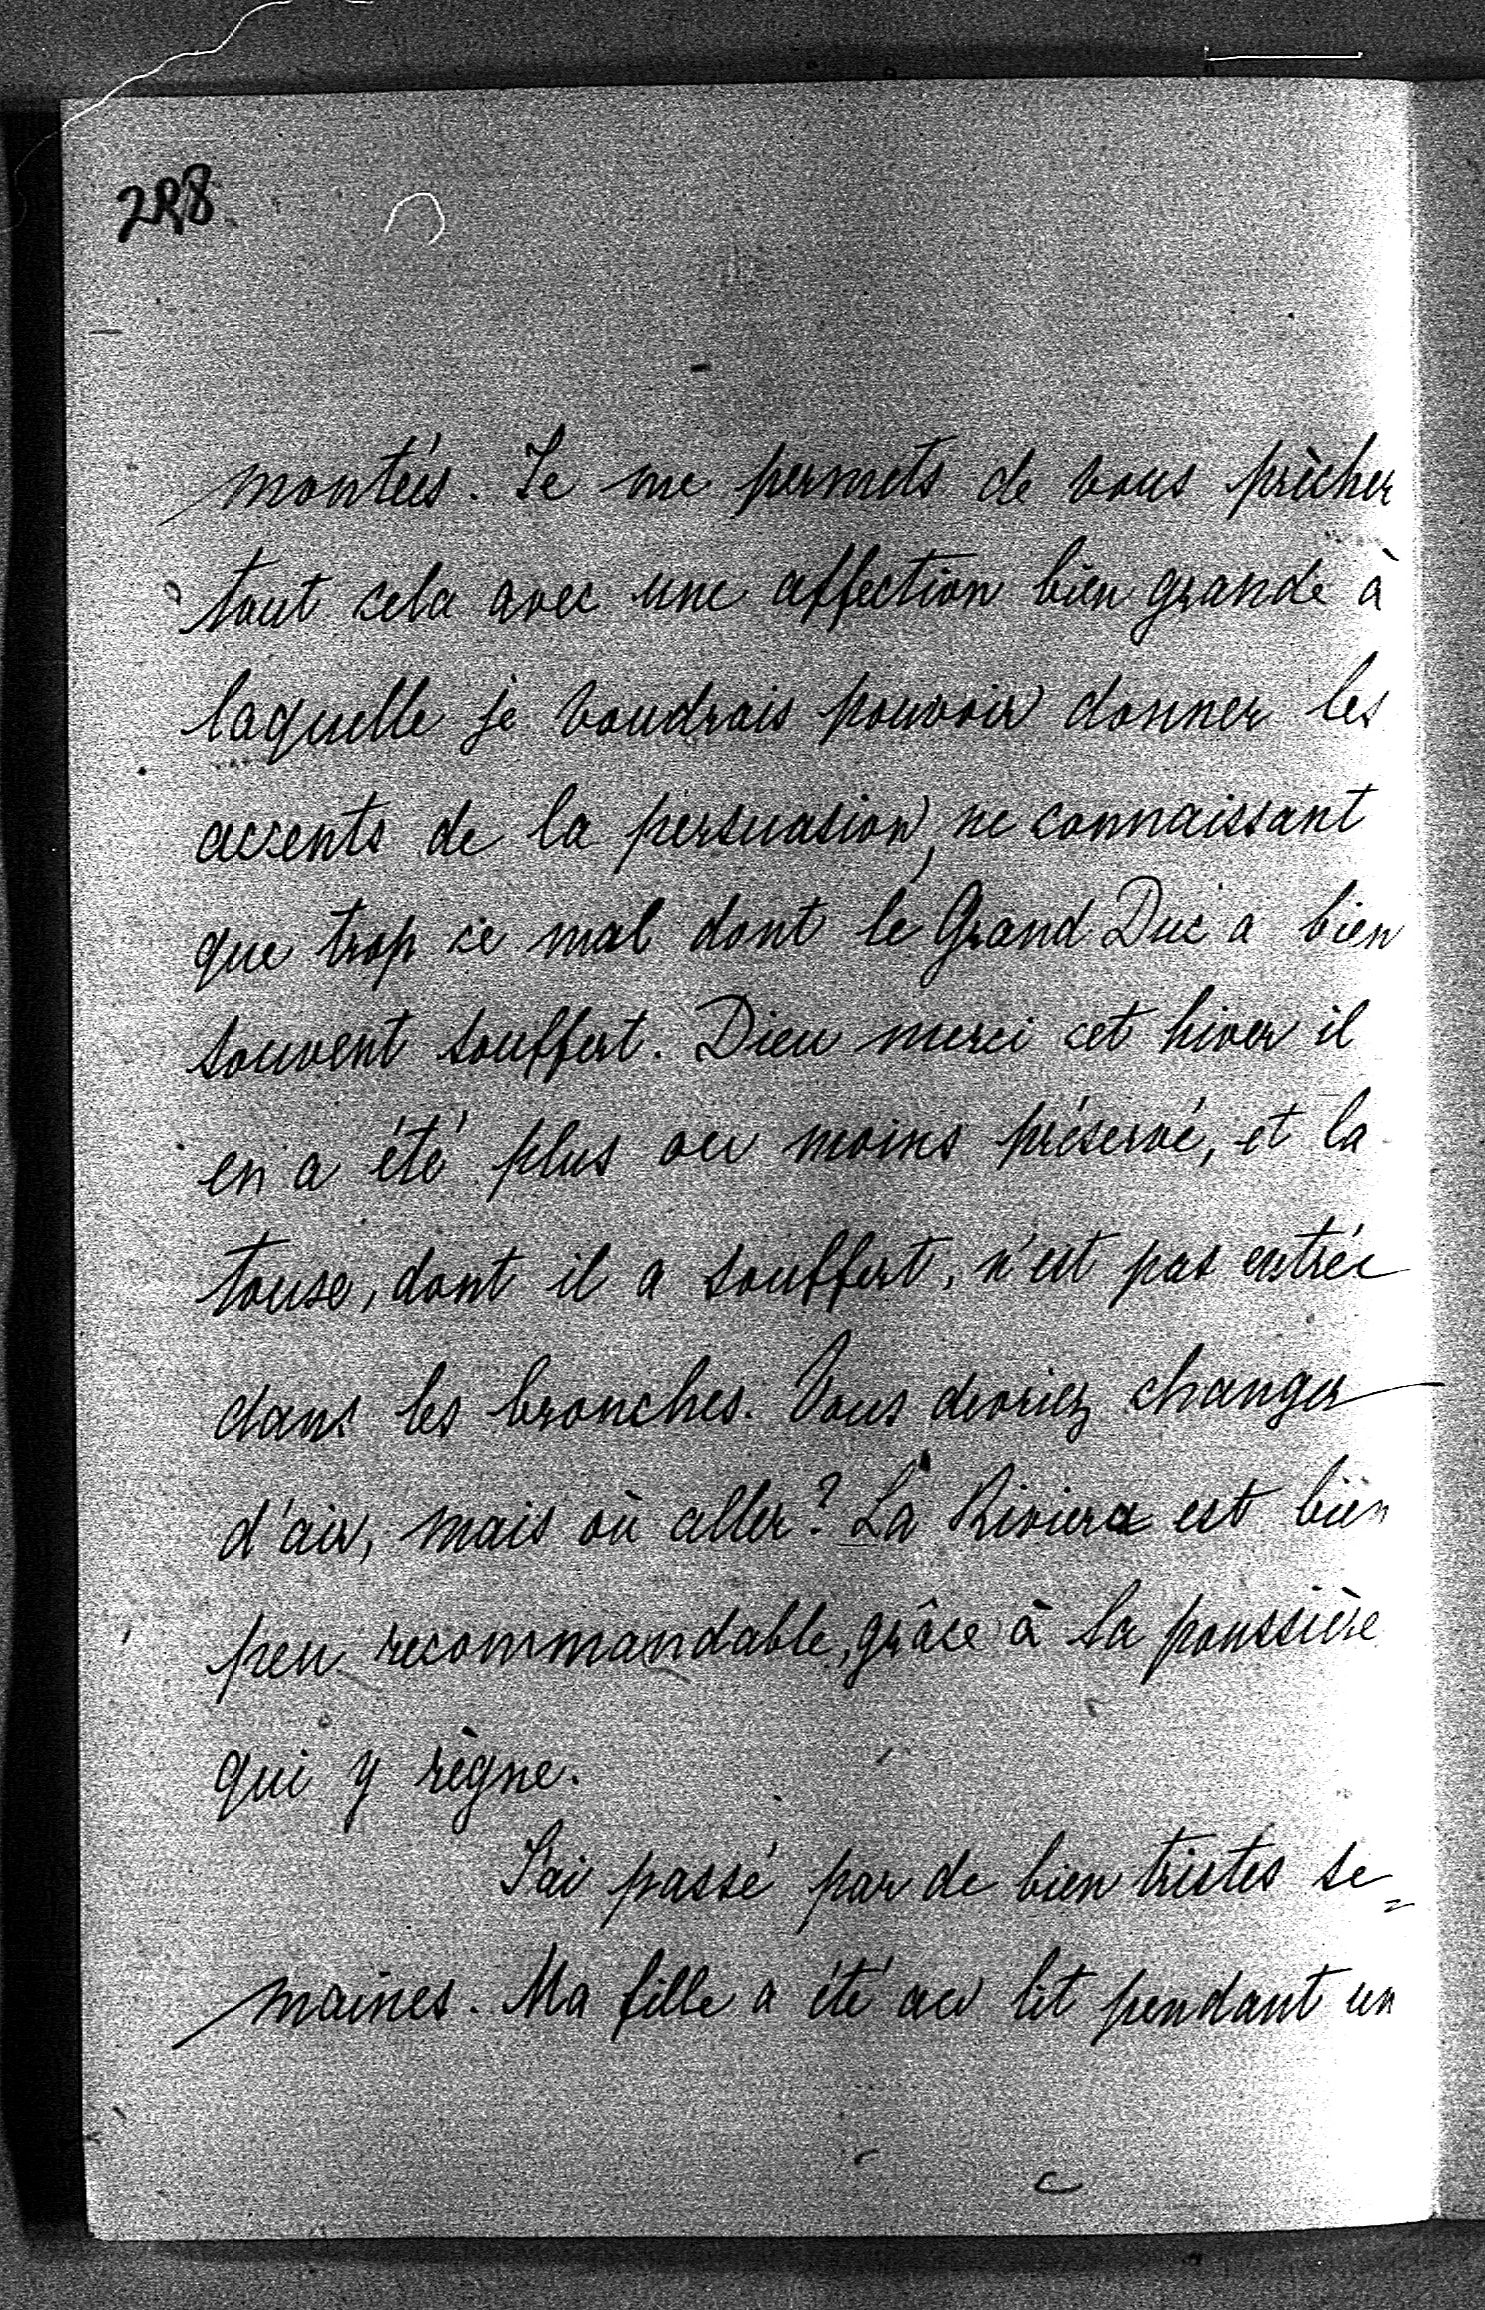 298
montées. Je me permets de vous prêcher
tout cela avec une affection bien grande à
laquelle je voudrais pouvoir donner les
accents de la persuasion, ne connaissant
que trop ce mal dont le Grand Duc a bien
souvent souffert. Dieu merci cet hiver il
en a été plus ou moins préservé, et la
touse, dont il a souffert, n'est pas entrée
dans les bronches. Vous devriez changer
d'air, mais où aller? La Riviera est bien
peu recommandable, grâce à la poussière
qui y règne.
J'ai passé par de bien tristes se=
maines. Ma fille a été au lit pendant un